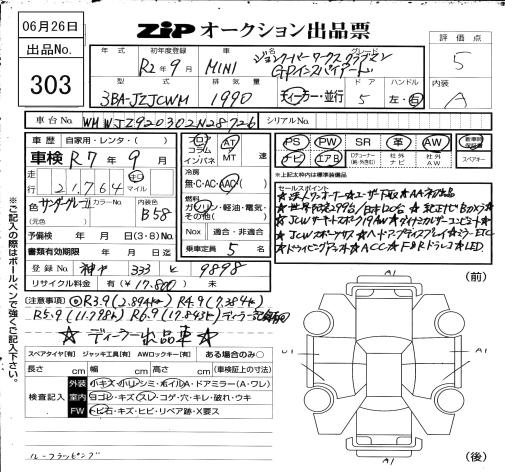 06月26日
ZIP オークション出品票
出品No.
303
年式 初年度登録 車名 グレード
R2年9月 MINI ジョンクーパーワークス クラブマン GPインスパイアード
型式 排気量 ドア ハンドル
3BA-JZJCWM 1990 ディーラー・並行 5 左・右
評価点
5
内装
A
車台No. WMWJZ920302N28726 シリアルNo.
車歴 自家用・レンタ・( )
車検 R7年9月
走行 21,764 キロ マイル
色 サンダーグレー カラーNo. 内装色 B58
(元色)
予備検 年 月 日迄 (3・8) No.
書類有効期限 年 月 日迄
フロア コラム インパネ AT MT 速
冷房 無・C・AC・AAC
燃料 ガソリン・軽油・電気・その他( )
Nox 適合・非適合
乗車定員 5 名
登録No. 神戸 333 9898
リサイクル料金 有(¥17,800) 未
PS PW SR 革 AW
ナビ エアB Dチューナー 社外ナビ 社外AW スペアキー
※上記太枠内は標準装備品
セールスポイント
★ワンオーナー★ユーザー下取★AA初出品
★JCWスポーツサス★ヘッドアップディスプレイ★ミラーETC
★ドライビングアシスト★ACC★F&Rドラレコ★LED
(注意事項) R3.9(2,894km) R4.9(7,384km)
R5.9(11,798k) R6.9(17,843k)ディーラー記録簿
★ディーラー出品車★
スペアタイヤ[有] ジャッキ工具[有] AWロックキー[有] ある場合のみ○
長さ cm 幅 cm 高さ cm (車検証上の寸法)
検査記入
外装 小キズ・小凹・シミ・ホイルA・ドアミラー(A・ワレ)
室内 ヨゴレ・キズ・スレ・コゲ・穴・キレ・破れ・ウキ
FW トビ石・キズ・ヒビ・リペア跡・X要ス
ルーフラッピング
※ご記入の際はボールペンで強くご記入下さい。
(前)
A1
U1
A1
A1
(後)